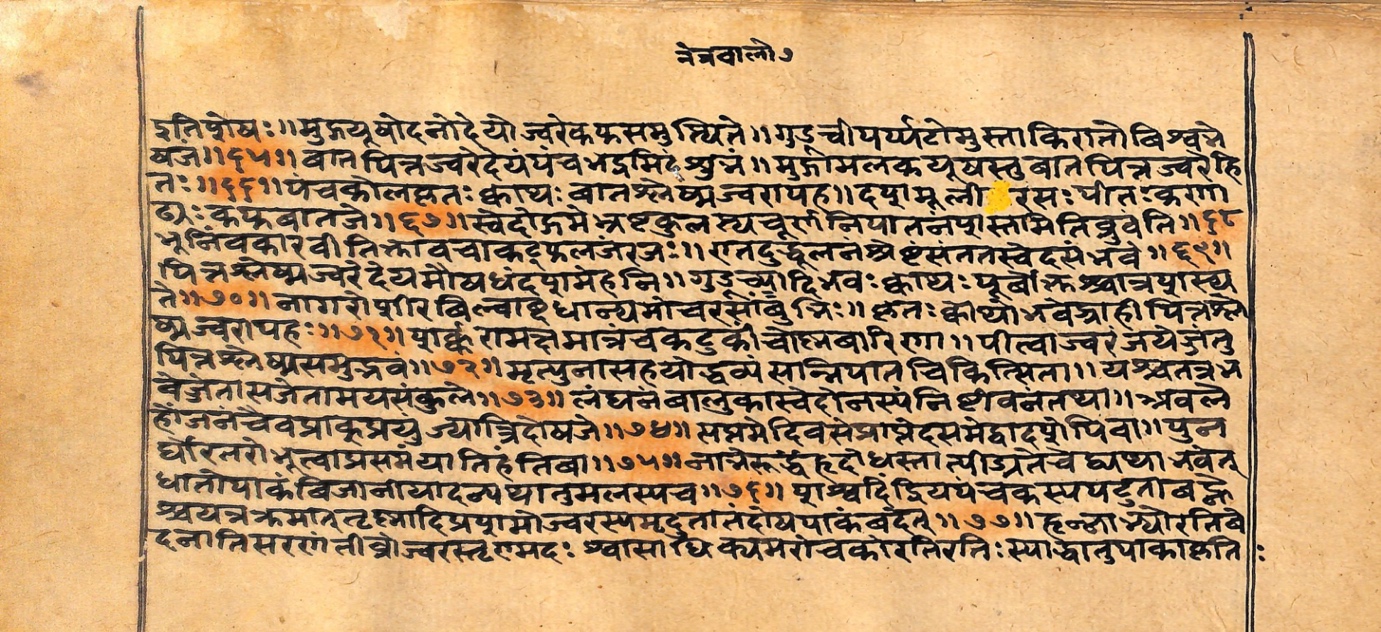 नेत्रवालो७
द्गतिशोषः॥मुद्गयूषोदनोदेयोज्वरेकफसमुत्थिते॥गुडूचीपर्प्पटोमुस्ताकिरातोविश्वभे
षजं॥६५॥वातपित्तज्वरेदेयंपंचभद्रमिदंशुभं॥मुद्गामलकयूषस्तुवातपित्तज्वरेहि
तः॥६६॥पंचकोलकृतःक्वाथःवातश्लेष्मज्वरापह॥दशमूलीरसःपीतःकणा
ढ्यःकफवातजे॥६७॥स्वेदोद्गमेभ्रष्टकुलत्थचूर्णनिपातनंशस्तामितिब्रुवंति॥६८
भूनिंबकारवीतिक्तावचाकट्फलजंरजः॥एतदुद्धूलनंश्रेष्टंसंततस्वेदसंभवे॥६९॥
पित्तश्लेष्मज्वरेदेयमौषधंदशमेहनि॥गुडूच्यादिभवःक्वाथःपूर्वोक्तश्चात्रशस्य
ते॥७०॥नागरोशीरबिल्वाब्दधान्यमोचरसांबुभिः॥कृतःक्वाथोभवेद्ग्राहीपित्तश्ले
ष्मज्वरापहः॥७१॥शर्करामक्षमात्रंचकटुकीचोष्णवारिणा॥पीत्वाज्वरंजयेज्जंतु
पित्तश्लेष्मसमुद्भवं॥७२॥मृत्युनासहयोद्धव्यंसान्निपातचिकित्सिता॥यश्चतत्रभ
वेज्जेतासजेतामयसंकुले॥७३॥लंघनंबालुकास्वेदोनस्यंनिष्ठीवनंतथा॥अवले
होंजनंचैवप्राक्प्रयुज्यात्रिदोषजे॥७४॥सप्तमेदिवसेप्राप्तेदसमेद्वादशेपिवा॥पुन
र्घोरतरोभूत्वाप्रसमंयातिहंतिवा॥७५॥नाभेरूर्द्धंहृदोधस्तात्पीडितेचेद्व्यथाभवेत्
धातोःपाकंविजानीयादन्यथातुमलस्यच॥७६॥शश्वदिंद्रियपंचकस्यपटुतावह्ने
श्चयत्रक्रमात्तृष्णादिप्रशमोज्वरस्यमृदुतातंदोषपाकंवदेत्॥७७॥हृन्नाभ्योरतिवे
दनातिसरणंतीव्रोज्वरस्तृण्मदःश्वासाधिक्यमरोचकोरतिरतिःस्याद्धातुपाकाकृतिः